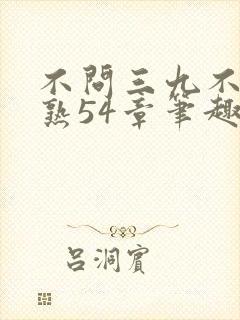 不問三九不
熟54章筆趣
呂洞賓